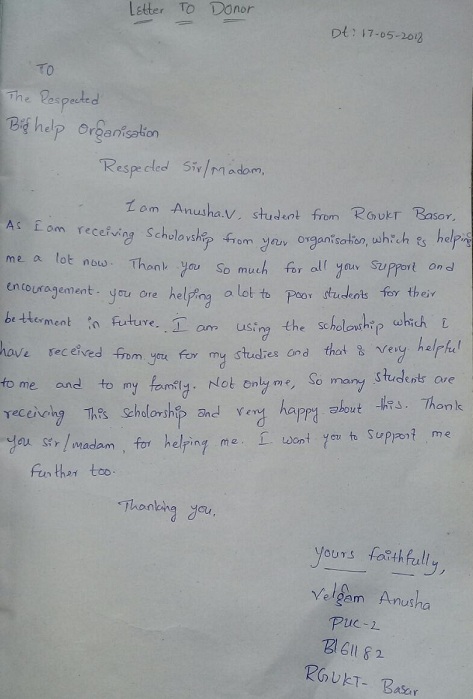 Letter To Donor
Dt: 17-05-2018
To
The Respected
Bighelp Organisation
Respected Sir/Madam,
I am Anusha.V, student from RGUKT Basar.
As I am receiving Scholarship from your organisation, which is helping
me a lot now. Thank you so much for all your support and
encouragement. you are helping a lot to poor students for their
betterment in future. I am using the scholarship which I
have received from you for my studies and that is very helpful
to me and to my family. Not only me, So many students are
receiving This Scholarship and very happy about this. Thank
you sir/madam, for helping me. I want you to support me
further too.
Thanking you,
yours faithfully,
Velgam Anusha
PUC-2
B161182
RGUKT- Basar